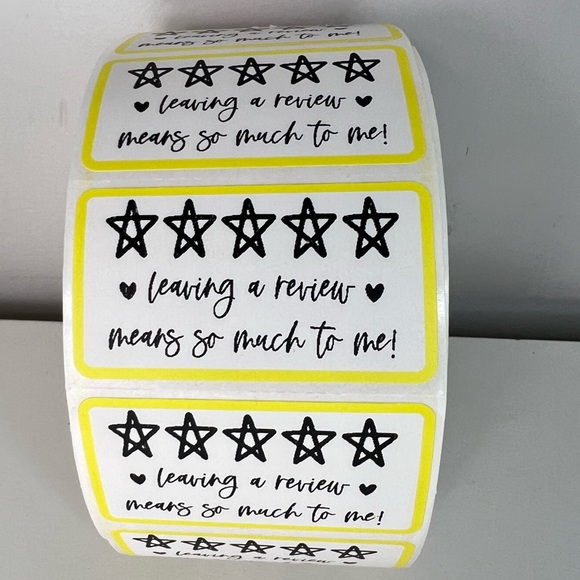 means so much to me!
leaving a review
means so much to me!
leaving a review
means so much to me!
leaving a review
means so much to me!
leaving a review